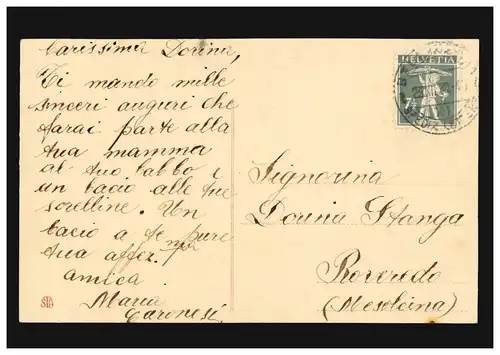 Carissima Dorina,
Ti mando mille
sinceri auguri che
farai parte alla
tua mamma
al tuo babbo e
un bacio alle tue
sorelline. Un
bacio a te pure
tua affez.ma
amica
Maria
Caronesi
HELVETIA
Signorina
Dorina Stanga
Roveredo
(Mesolcina)